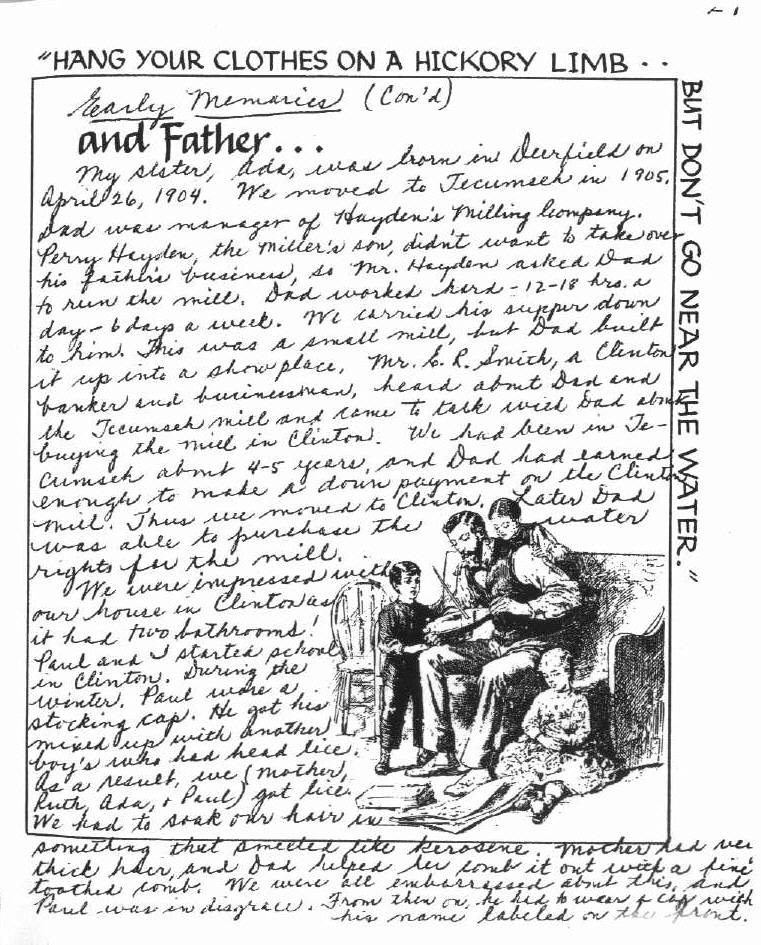 "HANG YOUR CLOTHES ON A HICKORY LIMB . .
BUT DON'T GO NEAR THE WATER."
Early Memories (Con'd)
and Father...
My sister, Ada, was born in Deerfield on
April 26, 1904. We moved to Tecumseh in 1905.
Dad was manager of Hayden's Milling Company.
Perry Hayden, the miller's son, didn't want to take over
his father's business, so Mr. Hayden asked Dad
to run the mill. Dad worked hard - 12-18 hrs. a
day - 6 days a week. We carried his supper down
to him. This was a small mill, but Dad built
it up into a showplace. Mr. E. R. Smith, a Clinton
banker and businessman, heard about Dad and
the Tecumseh mill and came to talk with Dad about
buying the mill in Clinton. We had been in Te-
cumseh about 4-5 years, and Dad had earned
enough to make a down payment on the Clinton
mill. Thus we moved to Clinton. Later Dad
was able to purchase the water
rights for the mill.
We were impressed with
our house in Clinton as
it had two bathrooms!
Paul and I started school
in Clinton. During the
winter, Paul wore a
stocking cap. He got his
mixed up with another
boy's who had head lice.
As a result, we (Mother,
Ruth, Ada, & Paul) got lice.
We had to soak our hair in
something that smelled like kerosene. Mother had ver
thick hair, and Dad helped her comb it out with a fine
toothed comb. We were all embarrassed about this, and
Paul was in disgrace. From then on, he had to wear a cap with
his name labeled on the front.